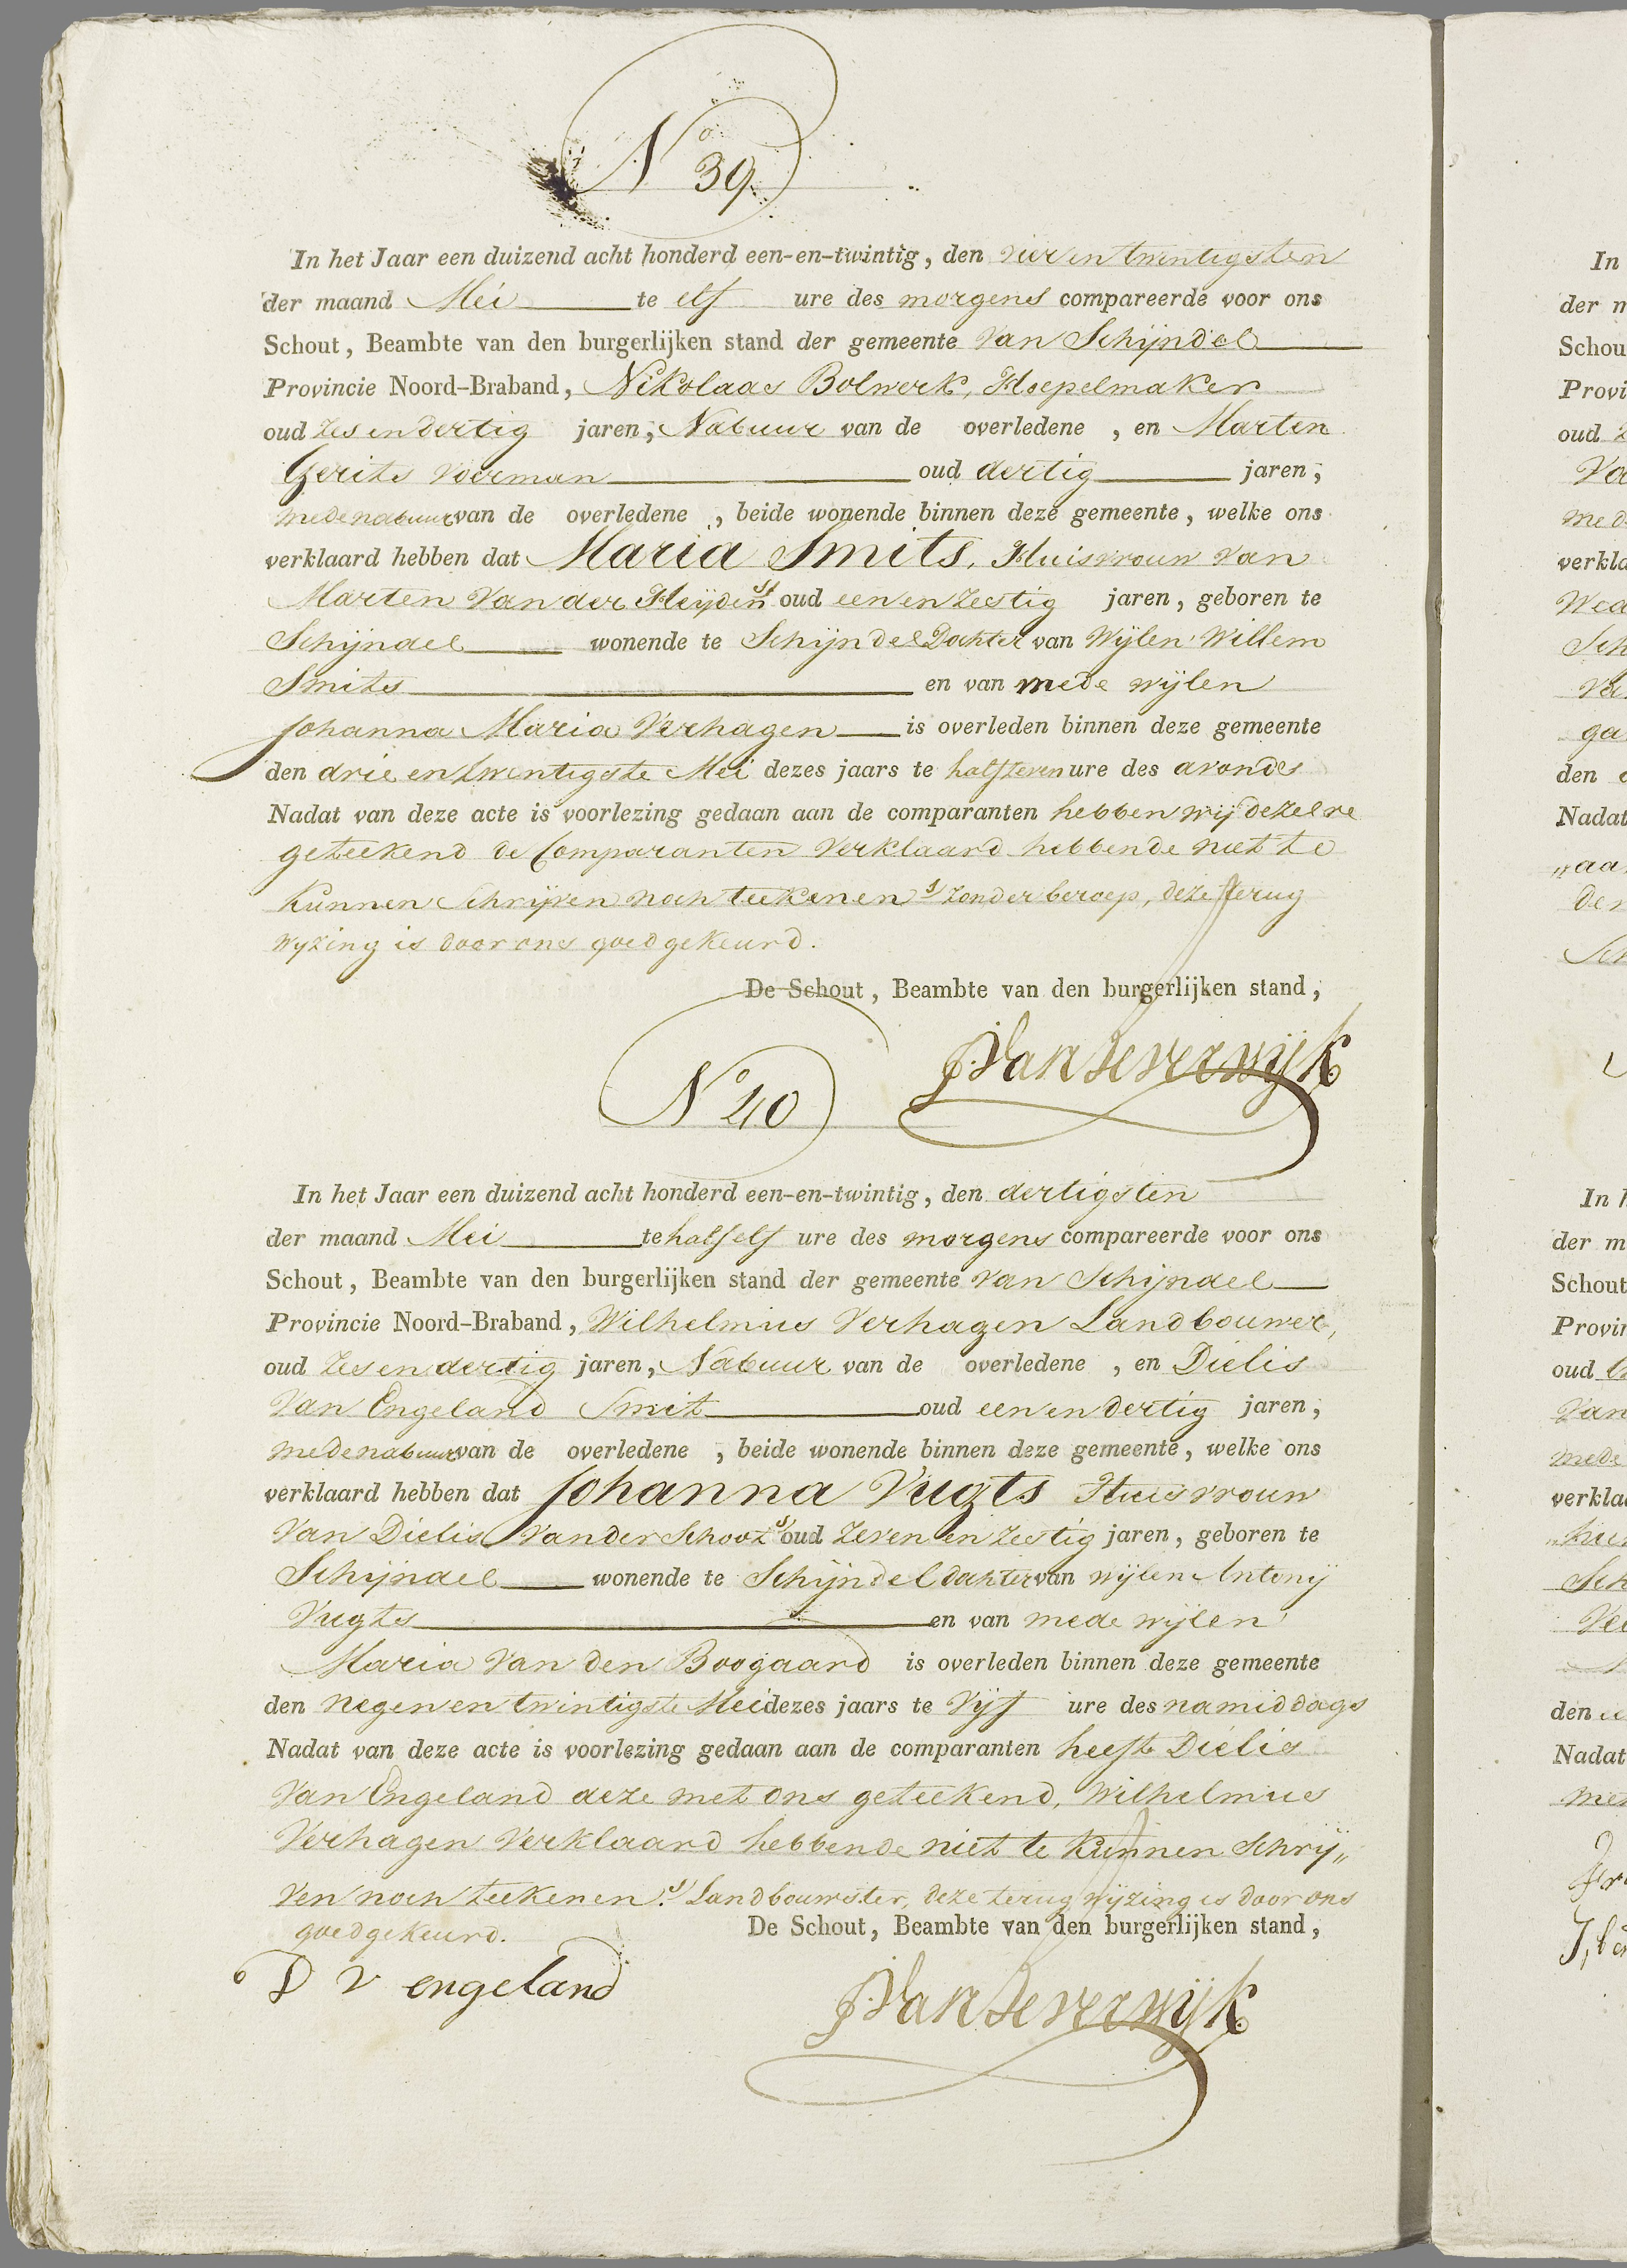 No 39
In het Jaar een duizend acht honderd een-en-twintig, den vier en twintigsten
der maand Mei te elf ure des morgens compareerde voor ons
Schout, Beambte van den burgerlijken stand der gemeente van Schijndel
Provincie Noord-Braband, Nikolaas Bolwerk, Hoepelmaker
oud zes en dertig jaren, Nabuur van de overledene, en Marten
Gerits voerman oud dertig jaren,
mede nabuur van de overledene, beide wonende binnen deze gemeente, welke ons
verklaard hebben dat Maria Smits, Huisvrouw van
Marten van der Heijden oud een en zestig jaren, geboren te
Schijndel wonende te Schijndel Dochter van Wijlen Willem
Smits en van mede wijlen
Johanna Maria Verhagen is overleden binnen deze gemeente
den drie en twintigste Mei dezes jaars te half zeven ure des avonds
Nadat van deze acte is voorlezing gedaan aan de comparanten hebben wij dezelve
geteekend de Comparanten verklaard hebbende niet te
kunnen Schrijven noch teekenen zonder beroep, deze terug
wyzing is door ons goedgekeurd.
De Schout, Beambte van den burgerlijken stand,
No 40
In het Jaar een duizend acht honderd een-en-twintig, den dertigsten
der maand Mei te half elf ure des morgens compareerde voor ons
Schout, Beambte van den burgerlijken stand der gemeente van Schijndel
Provincie Noord-Braband, Wilhelmus Verhagen Landbouwer,
oud zes en dertig jaren, Nabuur van de overledene, en Dielis
van Engeland Smit oud een en dertig jaren,
mede nabuur van de overledene, beide wonende binnen deze gemeente, welke ons
verklaard hebben dat Johanna Vugts Huisvrouw
van Dielis van der Schoot oud zeven en zestig jaren, geboren te
Schijndel wonende te Schijndel dochter van wijlen Antonij
Vugts en van mede wijlen
Maria van den Boogaard is overleden binnen deze gemeente
den negen en twintigste Mei dezes jaars te vijf ure des namiddags
Nadat van deze acte is voorlezing gedaan aan de comparanten heeft Dielis
van Engeland deze met ons geteekend, Wilhelmus
Verhagen verklaard hebbende niet te kunnen schrij„
ven noch teekenen. Landbouwster, deze terug wijzing is door ons
goedgekeurd.
De Schout, Beambte van den burgerlijken stand,
D v engeland